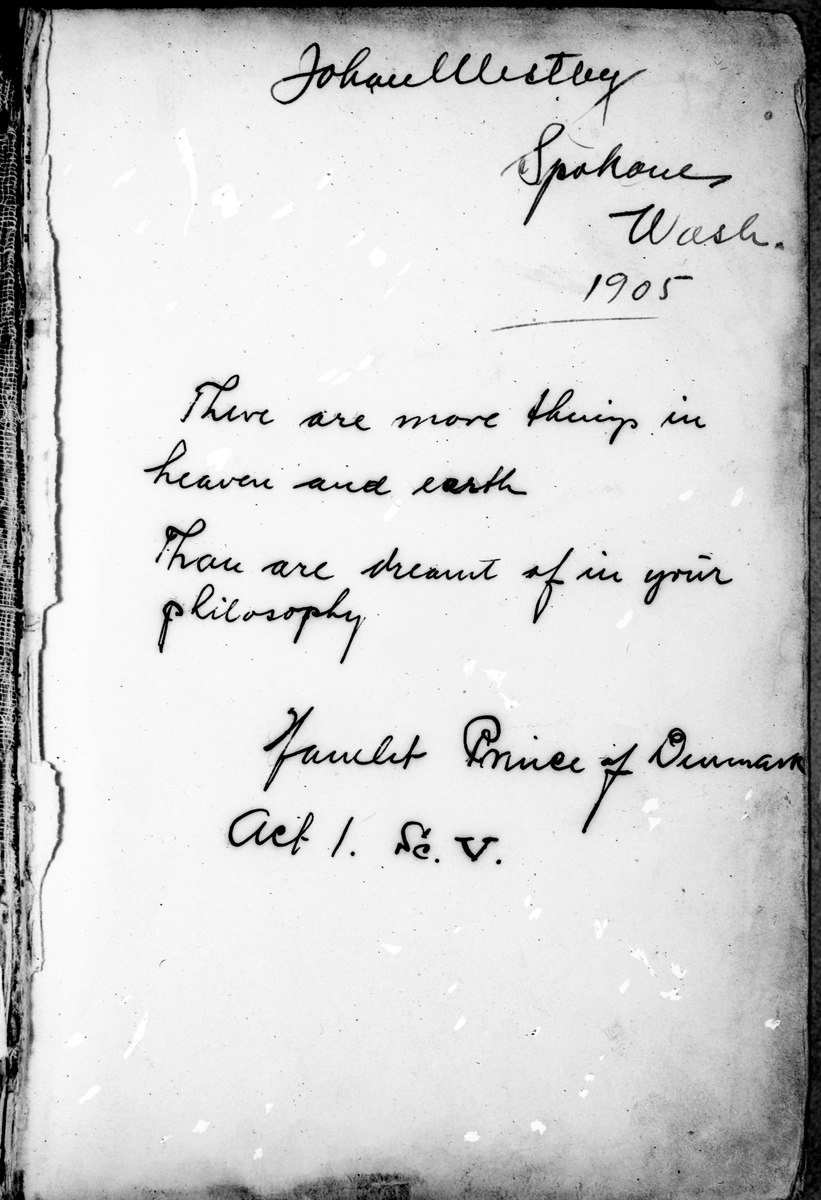 Johan Westby
Spokane
Wash.
1905
There are more things in
heaven and earth
Than are dreamt of in your
philosophy
Hamlet Prince of Denmark
Act 1. Sc. V.